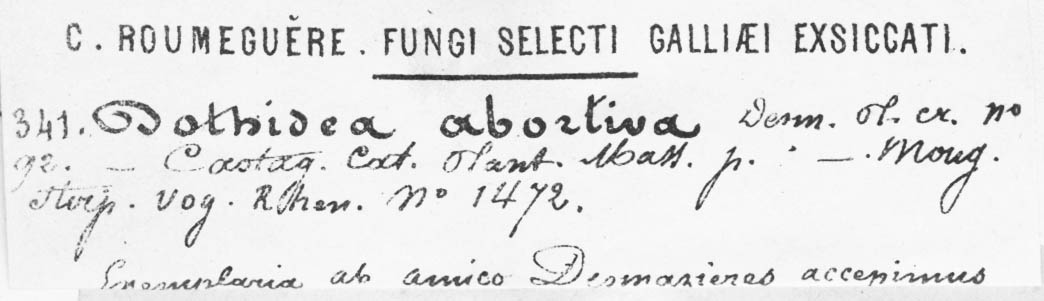 C. ROUMEGUĚRE. FUNGI SELECTI GALLIÆI EXSICCATI.
341. Dothidea abortiva Desm. Pl. cr. no
92. — Castag. Cat. Plant. Mass. p. · —. Moug.
Stirp. Vog. Rhen. No 1472.
Exemplaria ab amico Desmazieres accepimus